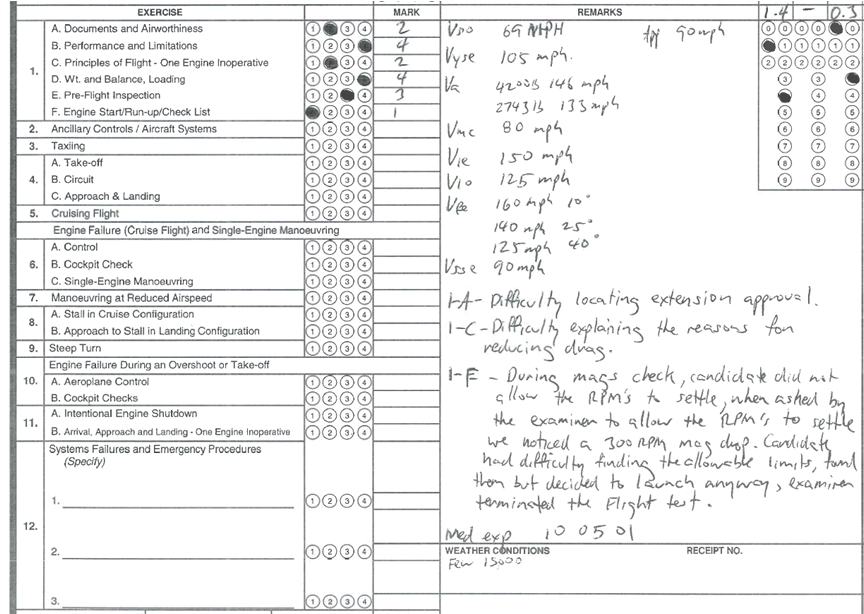 EXERCISE MARK REMARKS 1.4 - 0.3
1. A. Documents and Airworthiness 1 2 3 4 2
B. Performance and Limitations 1 2 3 4 4
C. Principles of Flight - One Engine Inoperative 1 2 3 4 2
D. Wt. and Balance, Loading 1 2 3 4 4
E. Pre-Flight Inspection 1 2 3 4 3
F. Engine Start/Run-up/Check List 1 2 3 4 1
2. Ancillary Controls / Aircraft Systems 1 2 3 4
3. Taxiing 1 2 3 4
4. A. Take-off 1 2 3 4
B. Circuit 1 2 3 4
C. Approach & Landing 1 2 3 4
5. Cruising Flight 1 2 3 4
Engine Failure (Cruise Flight) and Single-Engine Manoeuvring
6. A. Control 1 2 3 4
B. Cockpit Check 1 2 3 4
C. Single-Engine Manoeuvring 1 2 3 4
7. Manoeuvring at Reduced Airspeed 1 2 3 4
8. A. Stall in Cruise Configuration 1 2 3 4
B. Approach to Stall in Landing Configuration 1 2 3 4
9. Steep Turn 1 2 3 4
Engine Failure During an Overshoot or Take-off
10. A. Aeroplane Control 1 2 3 4
B. Cockpit Checks 1 2 3 4
11. A. Intentional Engine Shutdown 1 2 3 4
B. Arrival, Approach and Landing - One Engine Inoperative 1 2 3 4
Systems Failures and Emergency Procedures
(Specify)
12. 1. 1 2 3 4
2. 1 2 3 4
3. 1 2 3 4
Vso 69 MPH 90 mph
Vyse 105 mph.
Va 4200lb 146 mph
2743 lb 133 mph
Vmc 80 mph
Vle 150 mph
Vlo 125 mph
Vfe 160 mph 10°
140 mph 25°
125 mph 40°
Vsse 90 mph
1-A- Difficulty locating extension approval.
1-C- Difficulty explaining the reasons for
reducing drag.
1-F - During mags check, candidate did not
allow the RPM's to settle, when asked by
the examiner to allow the RPM's to settle
we noticed a 300 RPM mag drop. Candidate
had difficulty finding the allowable limits, found
them but decided to launch anyway, examiner
terminated the Flight test.
Med exp 10 05 01
WEATHER CONDITIONS RECEIPT NO.
Few 15000
0 0 0 0 0
1 1 1 1
2 2 2 2 2 2
3 3
4 4
5 5 5
6 6 6
7 7 7
8 8 8
9 9 9